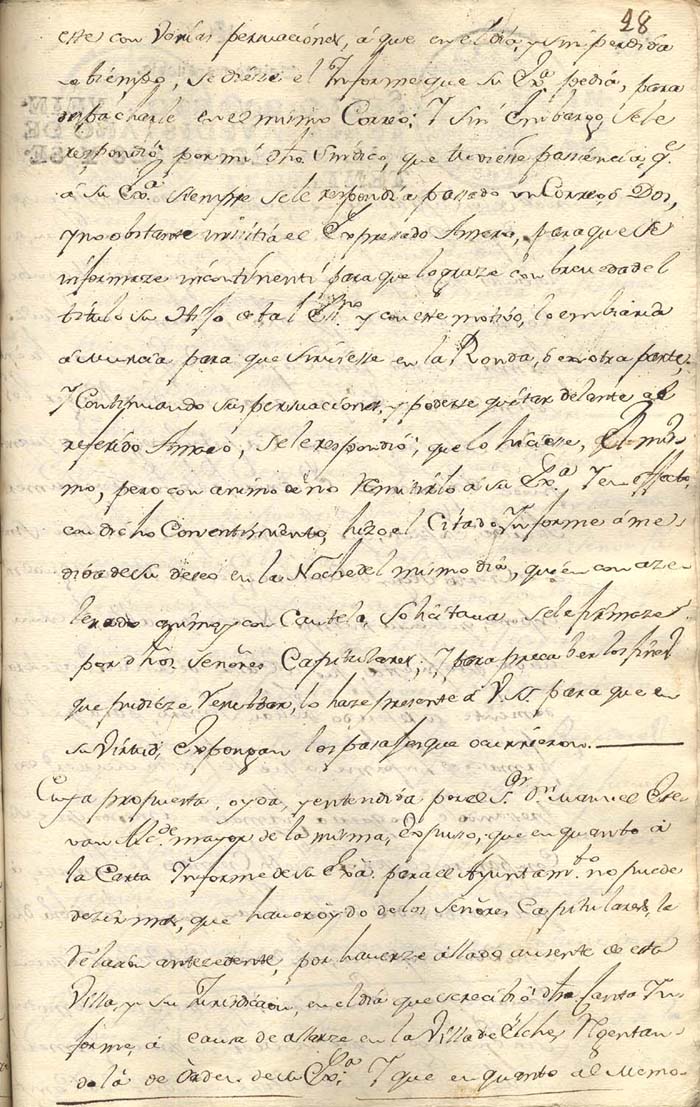 28
este con varias persuaciones, á que en el dia, y sin perdida
de tiempo, se diesse el Informe que su Exª pedia, para
despacharle en el mismo Correo; Y sin embargo, se le
respondió, por mi dho Sindico, que tuviesse passiencia, qe
á su Exª siempre se le respondia passado un Correo, ó Dos,
y no obstante insistia el Expresado Amoro, para que se
informaze incontinenti para que lograze con brevedad el
titulo su Hijo de tal y con este motivo, lo embiaria
á Murcia para que sirviesse en la Ronda, ó en otra parte,
Y Continuando sus persuaciones, y poderse quitar delante al
referido Amoro, se le respondió, que lo hiciesse, el mis-
mo, pero con animo de no remitirlo á su Exª Y en effecto
en dicho Consentimiento, hizo el Citado Informe á me-
dida de su deseo en la Noche del mismo dia, quien con aze-
lerado animo y con Cautela, Solicitava se le firmaze
por dhos Señores Capitulares; Y para precaber los fines
que pudieze lo haze presente á V.S. para que en
su Virtud, Expongan los pasajes que ocurrieron.
Cuya propuesta, oyda, y entendida por el Sor Dn Manuel Este-
van Alcde mayor de la misma, Expuso, que en quanto á
la Carta Informe de su Exª para el Ayuntamto no puede
dezir mas, que haver oydo de los Señores Capitulares, la
Relazion antecedente, por haverze allado ausente de esta
Villa, y su Jurisdicion, en el dia que se recibió dha Carta In-
forme, á causa de allarze en la Villa de Elche,
de orden de su Exª Y que en quanto al Memo-